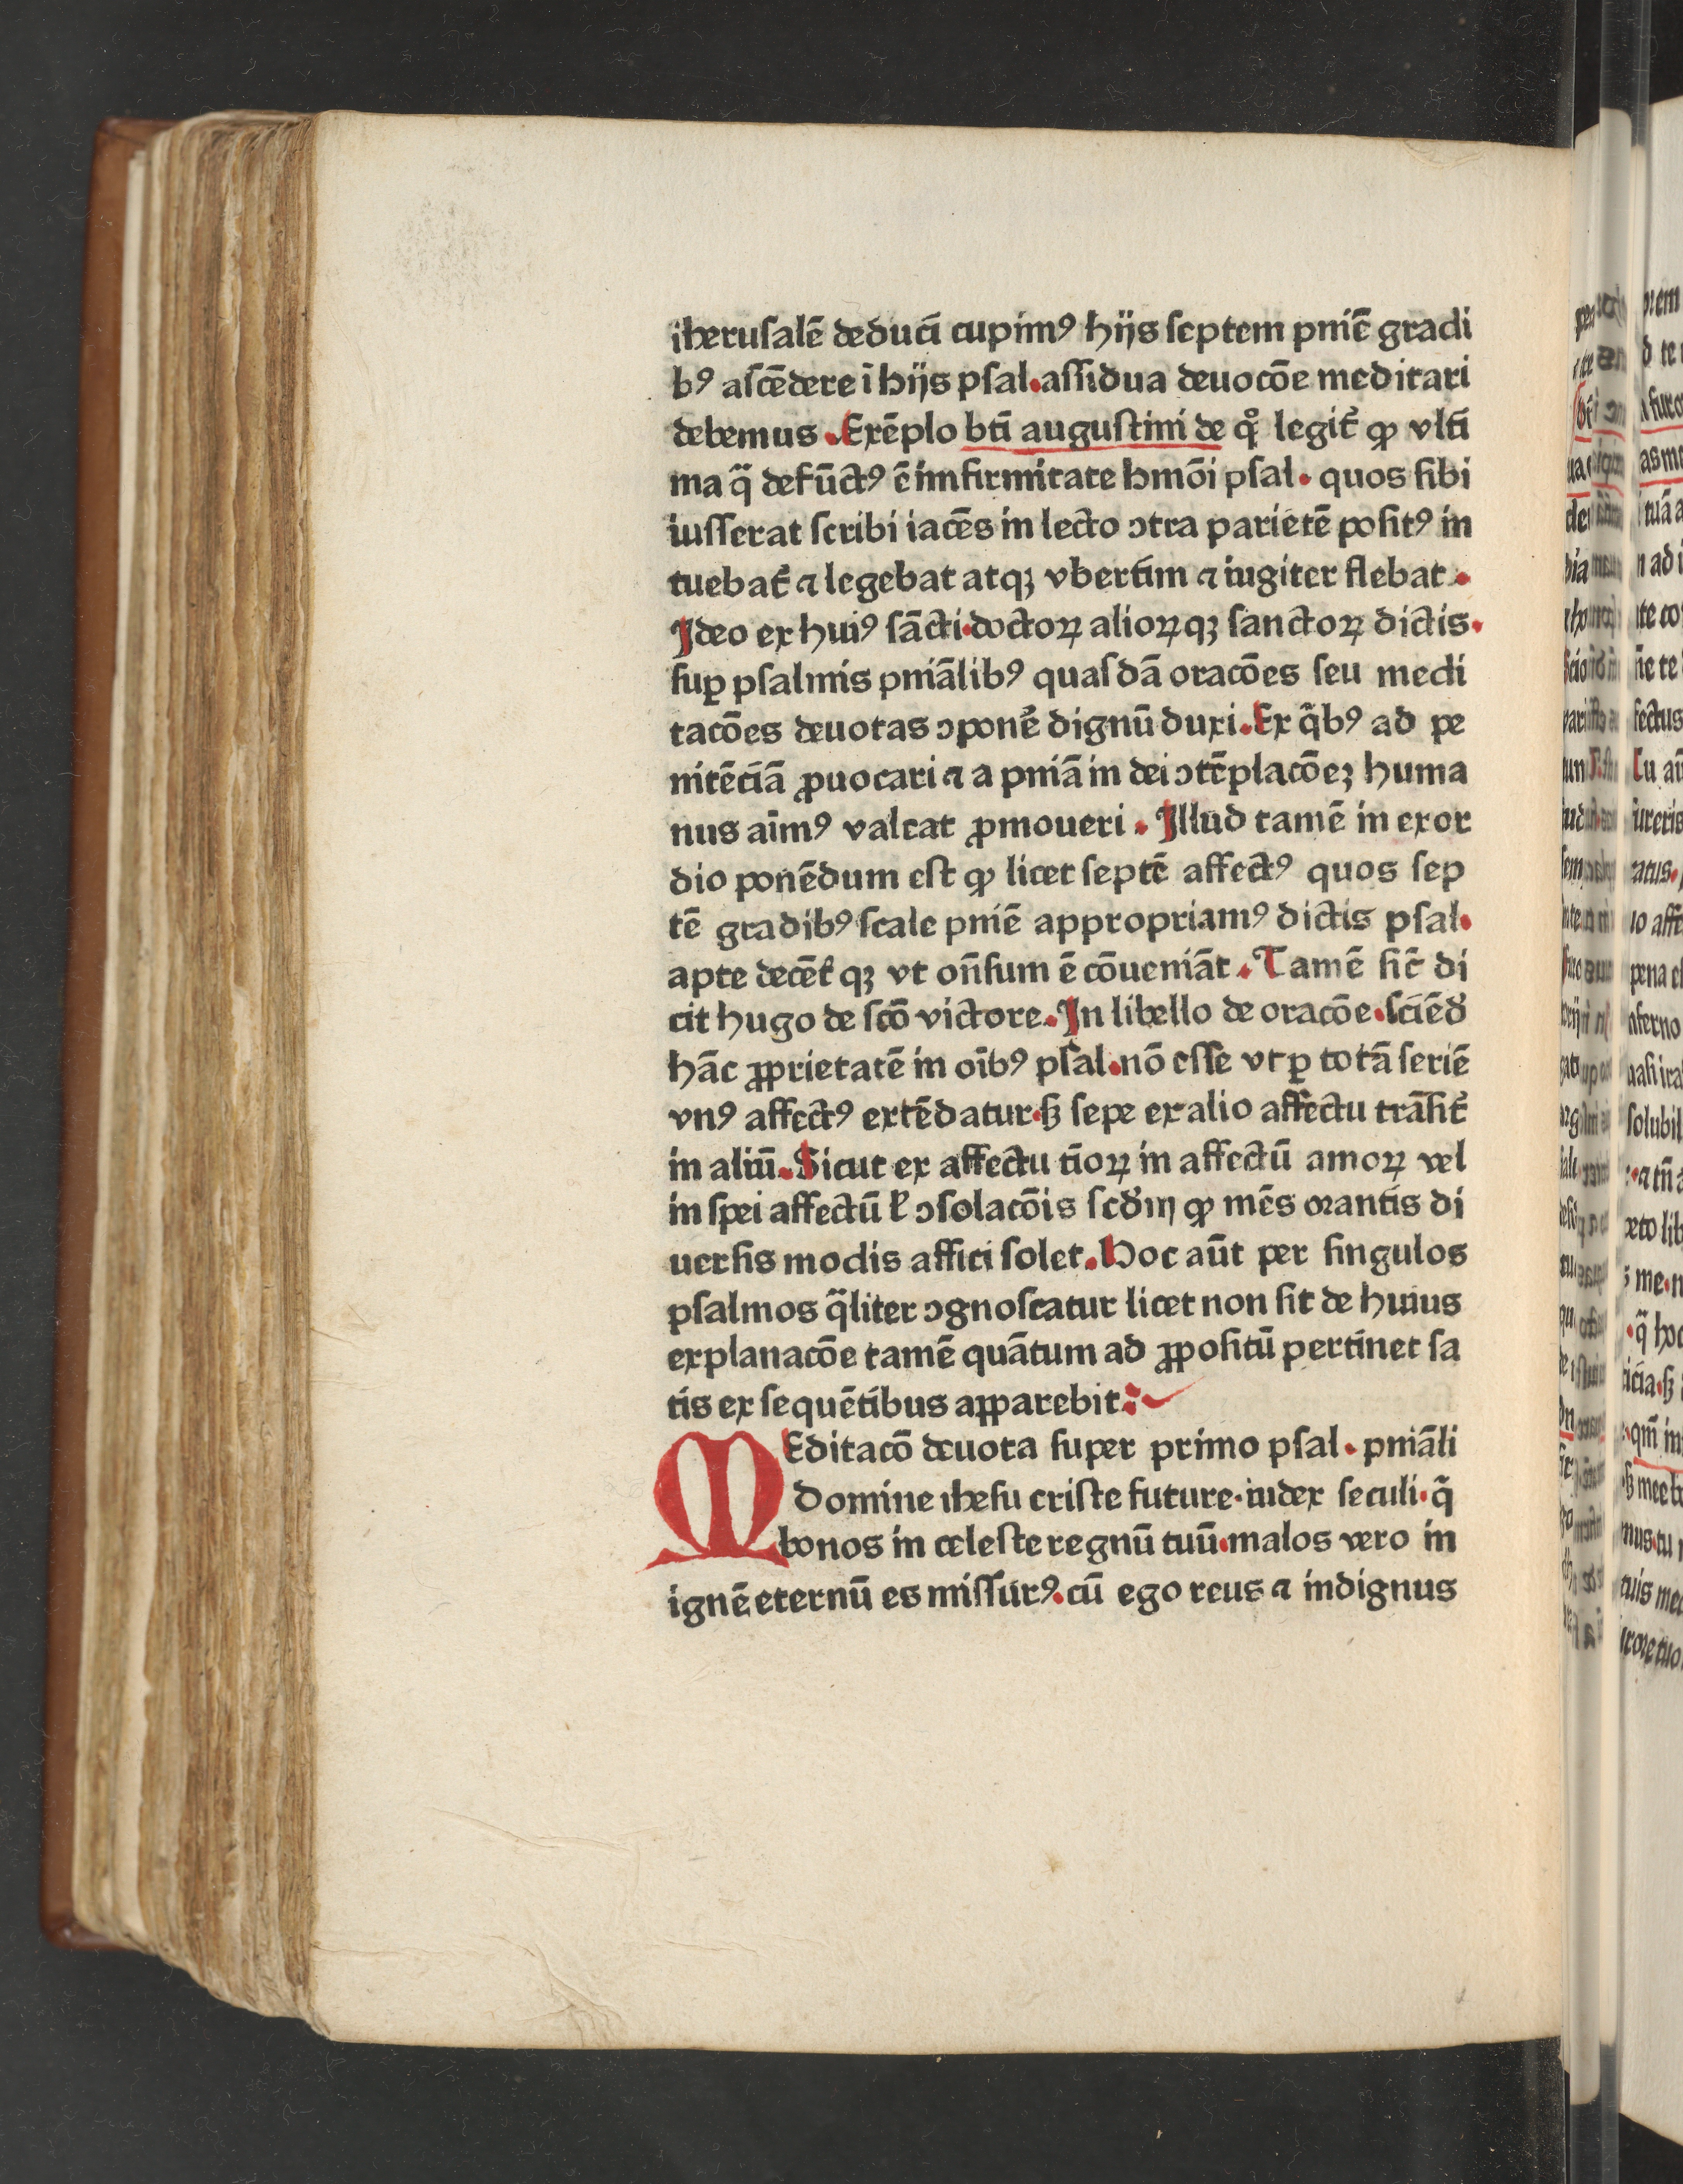 iherusalē deduci cupimꝰ hijs septem pniē gradi
bꝰ ascēdere ī hijs psal. assidua deuocōe meditari
debemus . Exēplo bti augustini de qͦ legit᷑ ꝙ vlti
ma q̄ defūctꝰ ē infirmitate hmōi psal . quos sibi
iusserat scribi iacēs in lecto ↄtra parietē positꝰ in
tuebat᷑ ⁊ legebat atqꝫ vbertim ⁊ iugiter flebat .
Ideo ex huiꝰ sācti . doctoꝝ alioꝝqꝫ sanctoꝝ dictis .
suꝑ psalmis pniālibꝰ quasdā oracōes seu medi
tacōes deuotas ↄponē dignū duxi . Ex q̄bꝰ ad pe
nitēciā ꝓuocari ⁊ a pniā in dei ↄtēplacōeꝫ huma
nus aīmꝰ valeat ꝓmoueri . Illud tamē in exor
dio ponēdum est ꝙ licet septē affectꝰ quos sep
tē gradibꝰ scale pniē appropriamꝰ dictis psal .
apte decēt᷑ qꝫ vt on̄sum ē cōueniāt . Tamē sic̄ di
cit hugo de scō victore . In libello de oracōe . sciēd̄
hāc ꝓprietatē in oībꝰ psal . nō esse vt ꝑ totā seriē
vnꝰ affectꝰ extēdatur . sꝫ sepe ex alio affectu trāsit᷑
in aliū . Sicut ex affectu tīoꝝ in affectū amoꝝ vel
in spei affectū ł ↄsolacōis scd̄m ꝙ mēs orantis di
uersis modis affici solet . Hoc aūt per singulos
psalmos q̄liter ↄgnoscatur licet non sit de huius
explanacōe tamē quātum ad ꝓpositū pertinet sa
tis ex sequētibus apparebit :
MEditacō deuota super primo psal . pniāli
Domine ihesu criste future . iudex seculi . q̄
bonos in celeste regnū tuū . malos vero in
ignē eternū es missurꝰ . cū ego reus ⁊ indignus